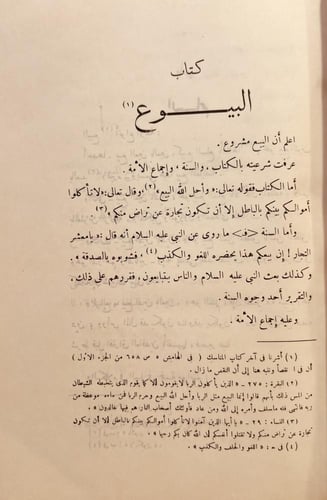 كتاب
البيـــوع (١)
اعلم أن البيع مشروع .
عرفت شرعيته بالكتاب ، والسنة ، وإجماع الأمة .
أما الكتاب فقوله تعالى : « وأحل الله البيع » (٢) ، وقال تعالى : « لا تأكلوا
أموالكم بينكم بالباطل إلا أن تكون تجارة عن تراض منكم » (٣) .
وأما السنة فما روى عن النبي عليه السلام أنه قال : « يا معشر
التجار ! إن بيعكم هذا يحضره اللغو والكذب (٤) ، فشوبوه بالصدقة » .
وكذلك بعث النبي عليه السلام والناس يتبايعون ، فقررهم على ذلك ،
والتقرير أحد وجوه السنة .
وعليه إجماع الأمة .
(١) أشرنا في آخر كتاب المناسك ( في الهامش ٤ ص ٦٥٨ من الجزء الأول )
أن في ا نقصاً وننبه هنا إلى أن النقص ما زال .
(٢) البقرة : ٢٧٥ – « الذين يأكلون الربا لا يقومون إلا كما يقوم الذي يتخبطه الشيطان
من المس ذلك بأنهم قالوا إنما البيع مثل الربا وأحل الله البيع وحرم الربا فمن جاءه موعظة من
ربه فانتهى فله ما سلف وأمره إلى الله ومن عاد فأولئك أصحاب النار هم فيها خالدون » .
(٣) النساء : ٢٩ – « يا أيها الذين آمنوا لا تأكلوا أموالكم بينكم بالباطل إلا أن تكون
تجارة عن تراض منكم ولا تقتلوا أنفسكم إن الله كان بكم رحيما » .
(٤) في ح : « اللغو والحلف والكذب » .